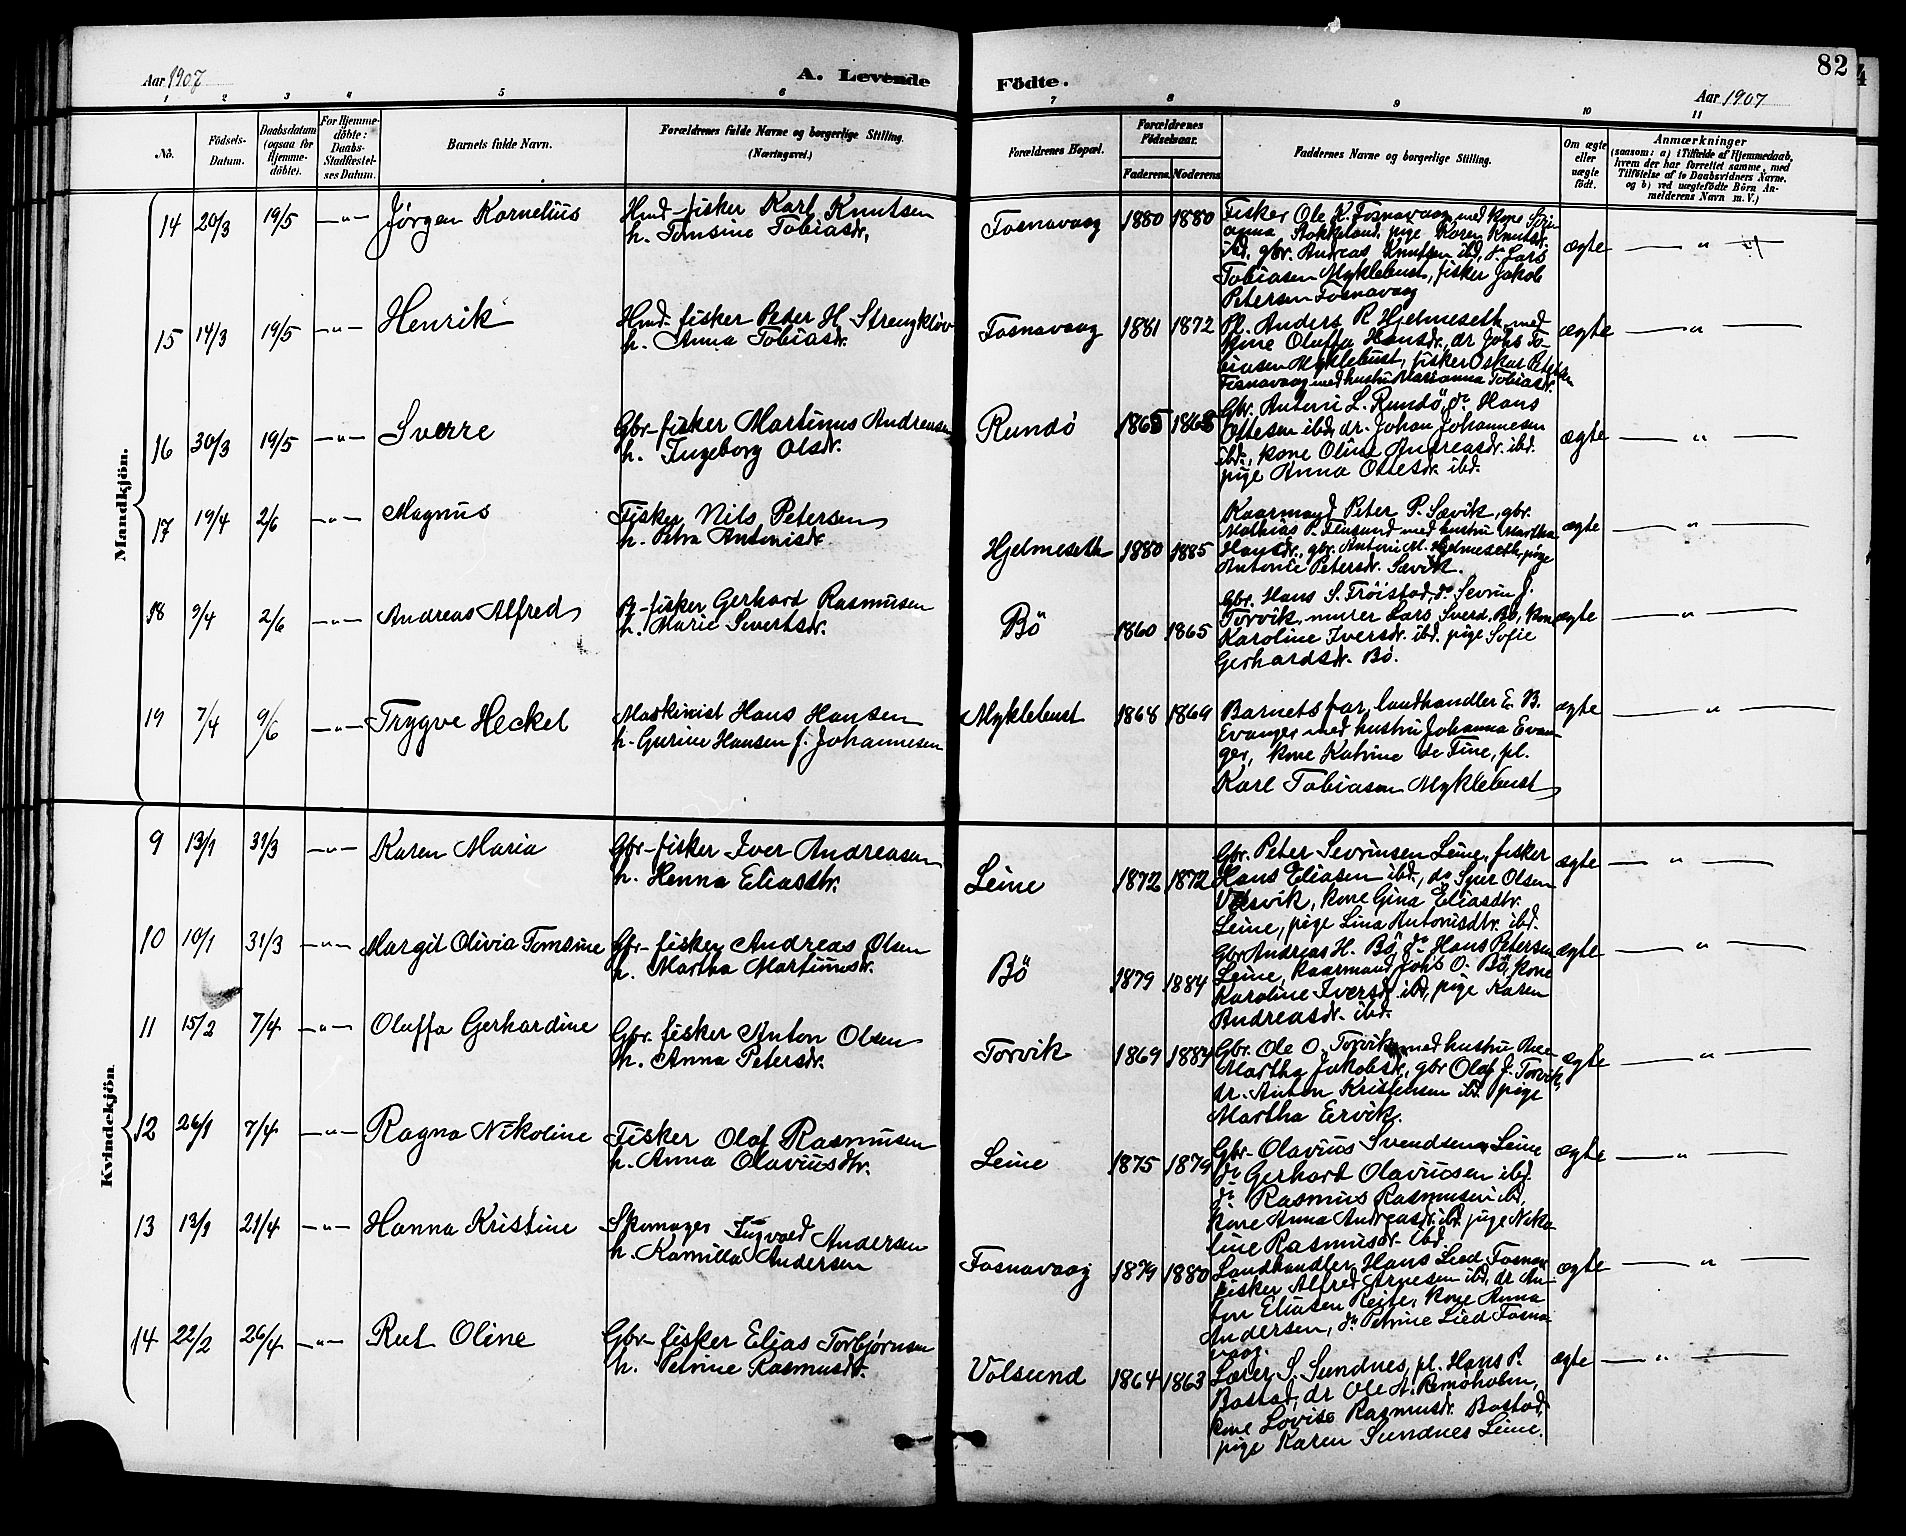 82
Aar 1907
A. Levende
Födte.
Aar 1907
1 2 3 4 5 6 7 8 9 10 11
No.
Födsels-
Datum.
Daabsdatum
(ogsaa for
Hjemme-
döbte).
For Hjemme-
döbte:
Daabs-
Stadfæstel-
ses Datum.
Barnets fulde Navn.
Forældrenes fulde Navne og borgerlige Stilling.
(Næringsvei.)
Forældrenes Bopæl.
Forældrenes
Födselsaar.
Faderens. Moderens.
Faddernes Navne og borgerlige Stilling.
Om ægte
eller
uægte
födt.
Anmærkninger
(saasom: a) i Tilfælde af Hjemmedaab,
hvem der har forrettet samme, med
Tilföielse af to Daabsvidners Navne,
og b) ved uægtefödte Börn An-
melderens Navn m. V.)
Mandkjön.
14 20/3 19/5 —"— Jørgen Kornelius
Hmd-fisker Karl Knutsen
h. Tomsine Tobiasdr.
Fosnavaag 1880 1880
Fisker Ole K. Fosnavaag med kone
Stokkeland, pige Karen Knutsdr.
ibd. gbr. Andreas Knutsen ibd, dr. Lars
Tobiasen Myklebust, fisker Jakob
Petersen Fosnavaag
ægte — " —
15 14/3 19/5 —"— Henrik
Hmd-fisker Peder H. Strengkløv
h. Anna Tobiasdr.
Fosnavaag 1881 1872
Pl. Anders R Hjelmeseth med
kone Oluffa Hansdr., dr Johs To-
biasen Myklebust, fisker Oskar Petersen
Fosnavaag med hustru Marianna Tobiasdr.
ægte — " —
16 30/3 19/5 —"— Sverre
Gbr-fisker Martinus Andreasen
h. Ingeborg Olsdr.
Rundö 1865 1868
Gbr. Antoni L. Rundö, do Hans
Ottesen ibd, dr. Johan Johannesen
ibd., kone Oline Andreasdr. ibd.
pige Anna Ottesdr. ibd.
ægte — " —
17 19/4 2/6 —"— Magnus
Fisker Nils Petersen
h. Petra Antonisdr.
Hjelmeseth 1880 1885
Kaarmand Peter P. Sævik, gbr.
Mathias P. Flusund med hustru Martha
Hansdr., gbr. Antoni M. Hjelmeseth, pige
Antonie Petersdr. Sævik.
ægte — " —
18 9/4 2/6 —"— Andreas Alfred
Pl-fisker Gerhard Rasmusen
h. Marie Sivertsdr.
Bö 1860 1865
Gbr. Hans S. Tröistad, do Sevrin J.
Torvik, murer Lars Sverd. Bö, kone
Karoline Iversdr. ibd. pige Sofie
Gerhardsdr. Bö.
ægte — " —
19 7/4 9/6 —"— Trygve Heckel
Maskinist Hans Hansen
h. Gurine Hansen f. Johannesen
Myklebust 1868 1869
Barnets far, landhandler E. B.
Evanger med hustru Johanna Evan-
ger, kone Katrine de Fine, pl.
Karl Tobiasen Myklebust
ægte — " —
Kvindekjön.
9 13/1 31/3 —"— Karen Maria
Gbr-fisker Iver Andreasen
h. Henna Eliasdtr.
Leine 1872 1872
Gbr. Peter Sevrinsen Leine, fisker
Hans Eliasen ibd., do Syver Olsen
kone Gina Eliasdtr.
Leine, pige Lina Antonisdtr. ibd.
ægte — " —
10 10/1 31/3 —"— Margit Olivia Tomsine
Gbr-fisker Andreas Olsen
h. Martha Martinusdr.
Bö 1879 1884
Gbr Andreas H. Bö, do Hans Petersen
Leine, kaarmand Johs O. Bö, kone
Karoline Iversdr. ibd, pige Karen
Andreasdr. ibd.
ægte — " —
11 15/2 7/4 —"— Oluffa Gerhardine
Gbr. fisker Anton Olsen
h. Anna Petersdr.
Torvik 1869 1884
Gbr. Ole O. Torvik med hustru Ane
Martha Jakobsdr., gbr Olaf J. Torvik,
dr. Anton Kristensen ibd. pige
Martha Ervik.
ægte — " —
12 26/1 7/4 —"— Ragna Nikoline
Fisker Olaf Rasmusen
h. Anna Olaviusdtr.
Leine 1875 1879
Gbr. Olavius Svendsen Leine
do Gerhard Olaviusen ibd.
do Rasmus Rasmusen ibd,
kone Anna Andreasdr. ibd. pige Niko-
line Rasmusdr. ibd.
ægte — " —
13 13/1 21/4 —"— Hanna Kristine
Skomager Ingvald Andersen
h. Kamilla Andersen
Fosnavaag 1879 1880
Landhandler Hans Lied Fosnav.
fisker Alfred Arnesen ibd, dr. An-
ton Eliasen Reite, kone Anna
Andersen, do Petrine Lied Fosna-
vaag.
ægte — " —
14 22/2 26/4 —"— Rut Oline
Gbr-fisker Elias Torbjørnsen
h. Petrine Rasmusdr.
Volsund 1864 1863
Lærer S. Sundnes, pl. Hans P.
Bostad, dr Ole A. Remöholm,
kone Lovise Rasmusdr. Bostad,
pige Karen Sundnes Leine.
ægte — " —